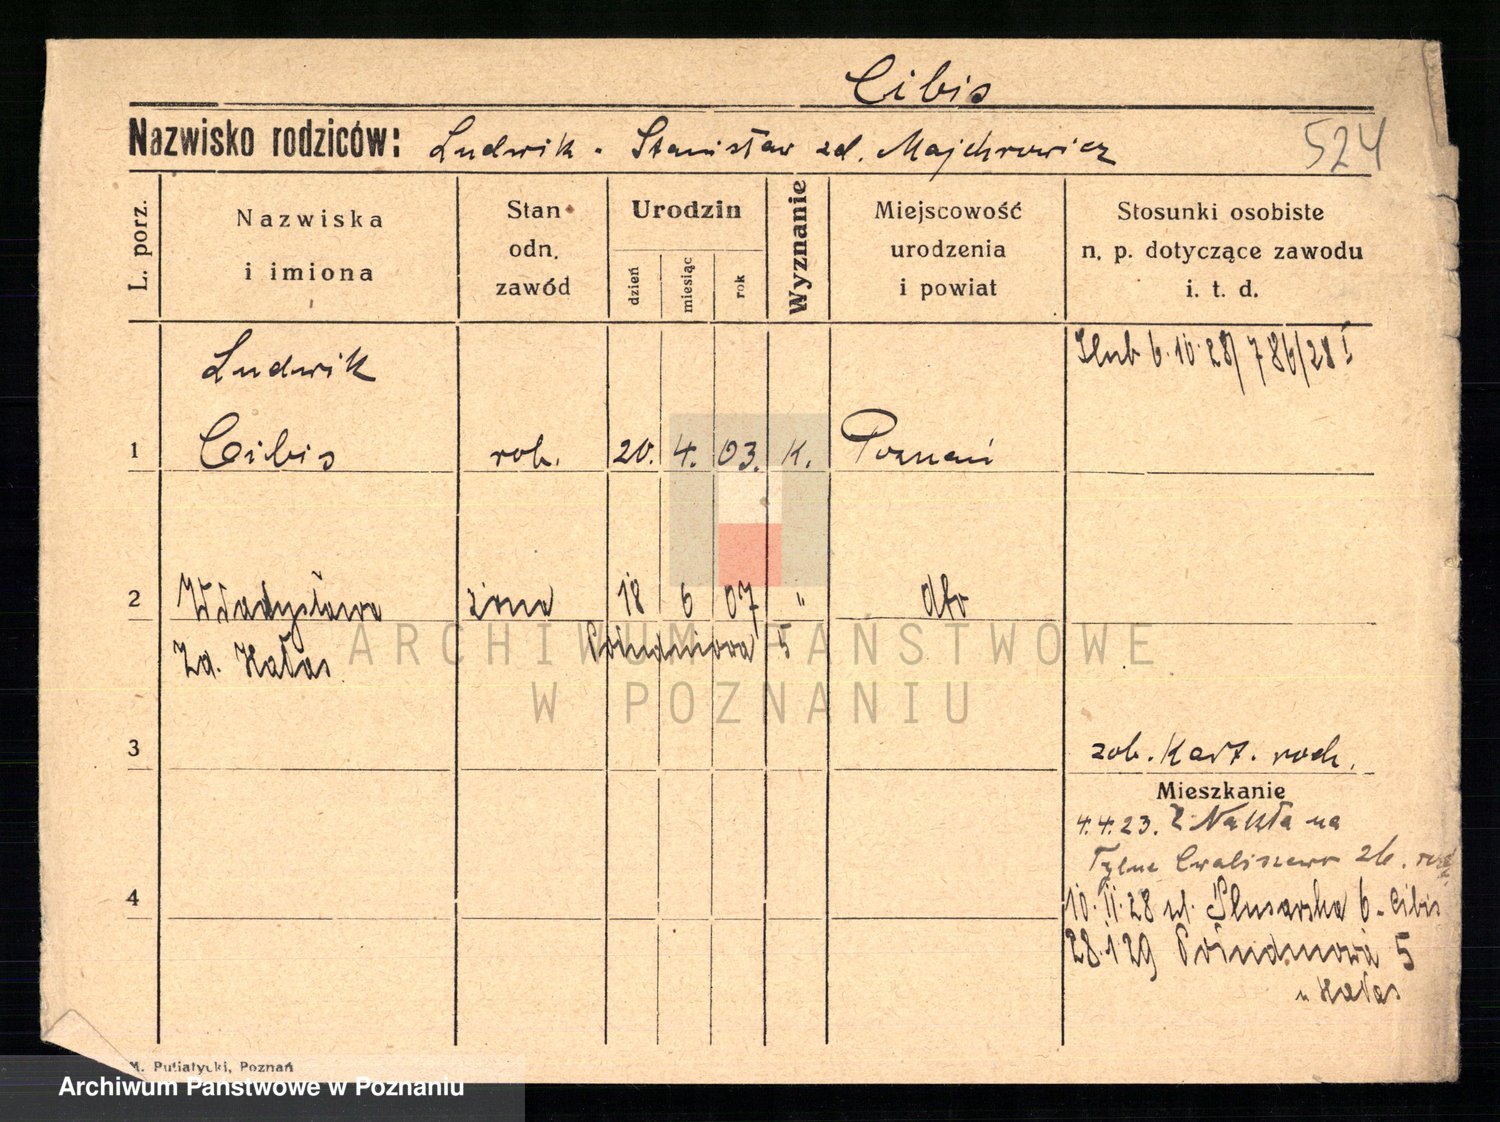 Cibis
Nazwisko rodziców: Ludwik - Stanisław zd. Majchrowicz
524
L. porz.
Nazwiska
i imiona
Stan
odn.
zawód
Urodzin
dzień
miesiąc
rok
Wyznanie
Miejscowość
urodzenia
i powiat
Stosunki osobiste
n. p. dotyczące zawodu
i. t. d.
Ślub 6.10.28/786/28 I
Ludwik
1 Cibis rob. 20. 4. 03. K. Poznań
2 Władysława żona 18 6 07 " dto
Zd. Hałas 5
ARCHIWUM PAŃSTWOWE
W POZNANIU
3
zob. Kart. rodz.
Mieszkanie
4.4.23. Z Nakła na
Tylne Chwaliszewo 26.
4
10.II.28 ul. Ślusarska 6 - Cibis
28.1 29 5
u Hałas
M. Putiatycki, Poznań
Archiwum Państwowe w Poznaniu